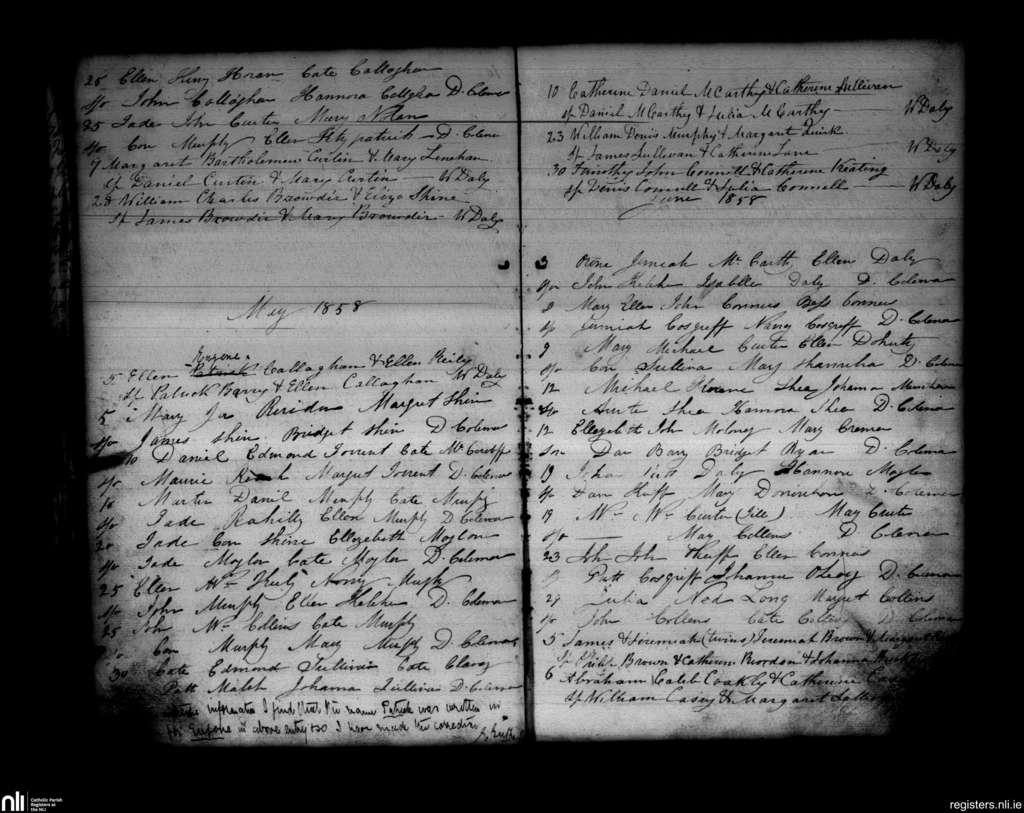 25 Ellen Heny Horan Cate Callaghan
Sp John Callaghan Hannora D. Colema
25 Jade Jhn Curtin Mary Nolan
Sp Con Murphy Ellen Fitzpatrick D. Colema
7 Margaret Bartholomew Curtin & Mary Lenihan
sp Daniel Curtin & Mary Curtin W Daly
28 William Charles Browder & Eliza Shine
Sp James Browder & Mary Browder W Daly
May 1858
Eugene
5 Ellen Patrick Callaghan & Ellen Reily
sp Patrick Barry & Ellen Callaghan W Daly
5 Mary Ja Reirdon Margret Shin
Sp James Shin Bridget Shin D Colema
10 Daniel Edmond Torrent Cate
Sp Maurice Margret Torrent D. Colema
Martin Daniel Murphy Cate Murphy
Sp Jade Rahilly Ellen Murphy D Colema
20 Jade Con Shine Ellezebeth Moylan
Sp Jade Moylan Cate Moylan D. Colema
25 Ellen Wm
Sp John Murphy Ellen Keleher D. Colema
25 Joh Wm Collins Cate Murphy
Con Murphy Mary Murphy D Colema
30 Cate Edmond Sullivan Cate Clancy
Patt Johana Sullivan D. Colema
I find that the name Patrick was written in
for Eugene in above entry so I have made the correction
10 Catherine Daniel McCarthy & Catherine Sullivan
sp Daniel McCarthy & Julia McCarthy W Daly
23 William Denis Murphy & Margaret Quirk
sp James Sullivan & Catherine Lane W Daly
30 Timothy John Connell & Catherine Keating
sp Denis Connell & Julia Connell W Daly
June 1858
3 Jemiah McCarthy Ellen Daly
Spo John Keleher Isabella Daly D. Colema
8 Mary Ellen John Connors Bess Connors
sp Jerimiah Cosgreff Nancy Cosgreff D. Colema
9 Mary Michael Curtin Ellen Doherty
Sp Con Sullivan Mary Shanahan D. Colema
12 Michael Shea Johanna
Sp Shea Hannora Shea D. Colema
12 Ellezebeth John Moloney Mary Cremen
Dan Barry Bridget Ryan D. Colema
19 John Daly Hannora Moylan
Sp Dan Huff Mary Donovan D. Colema
19 Wm Wm Curtin (Ille) May Curtin
Sp — May Collens D Colema
23 Jhn Jhn Huff Ellen Connors
Patt Cosgreff Johanna OLeary D. Colema
29 Julia Ned Long Margret Collins
Sp John Collens Cate Collens D. Colema
5 James & Jeremiah (twins) Jeremiah Brown &
Sp Philip Brown & Catherine Reordan & Johanna
6 Abraham Caleb Coakly & Catherine
sp William Casey & Margaret
nli
Catholic Parish
Registers at
the NLI
registers.nli.ie